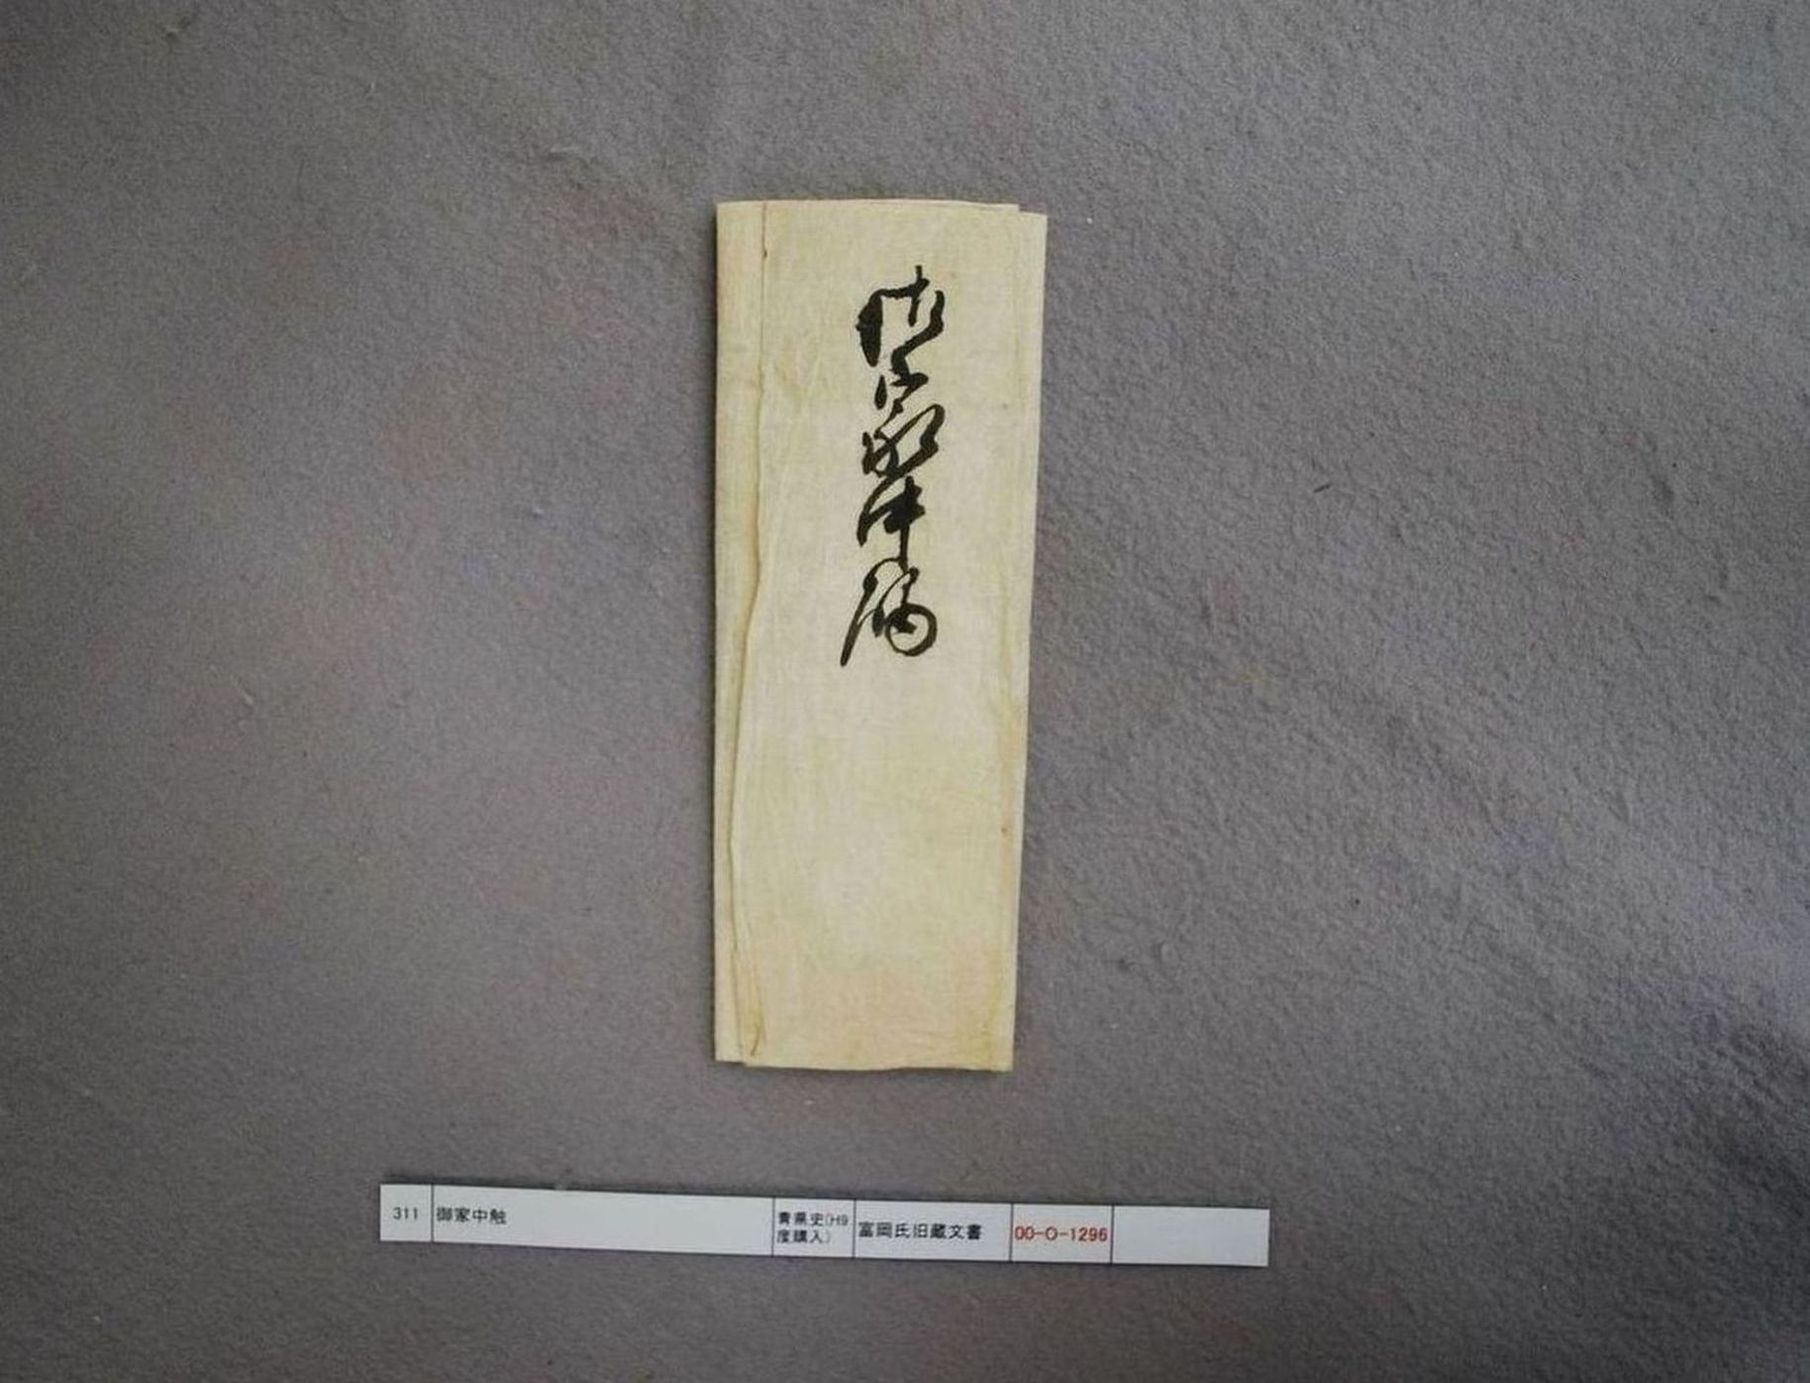 御家中触
311 御家中触
青県史(H9
度購入)
富岡氏旧蔵文書
00-O-1296